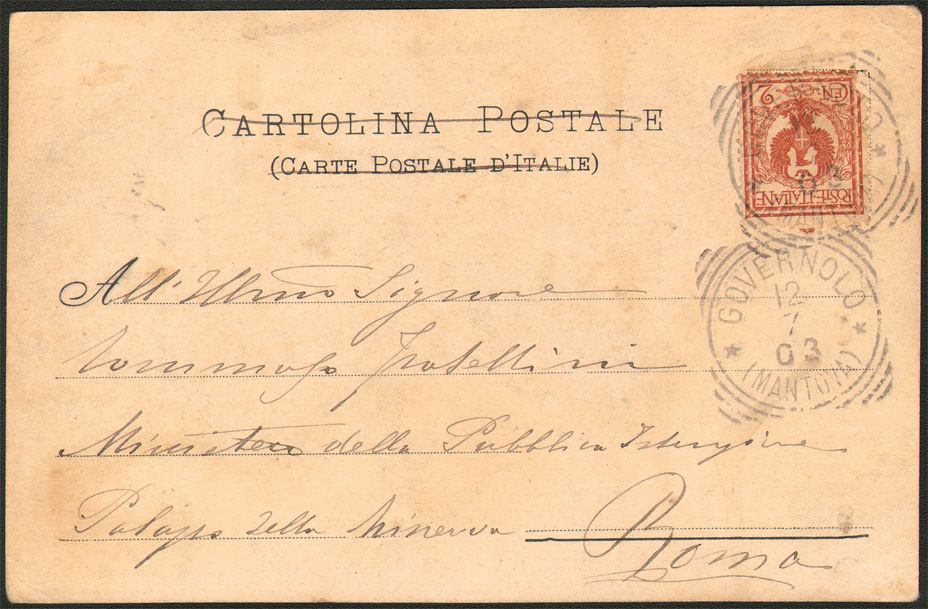 CARTOLINA POSTALE
(CARTE POSTALE D'ITALIE)
CEN 2
POSTE·ITALIANE
GOVERNOLO
12
7
03
(MANTOVA)
All' Illmo Signore
Tommaso Fratellini
Ministero della Pubblica Istruzione
Palazzo della Minerva
Roma